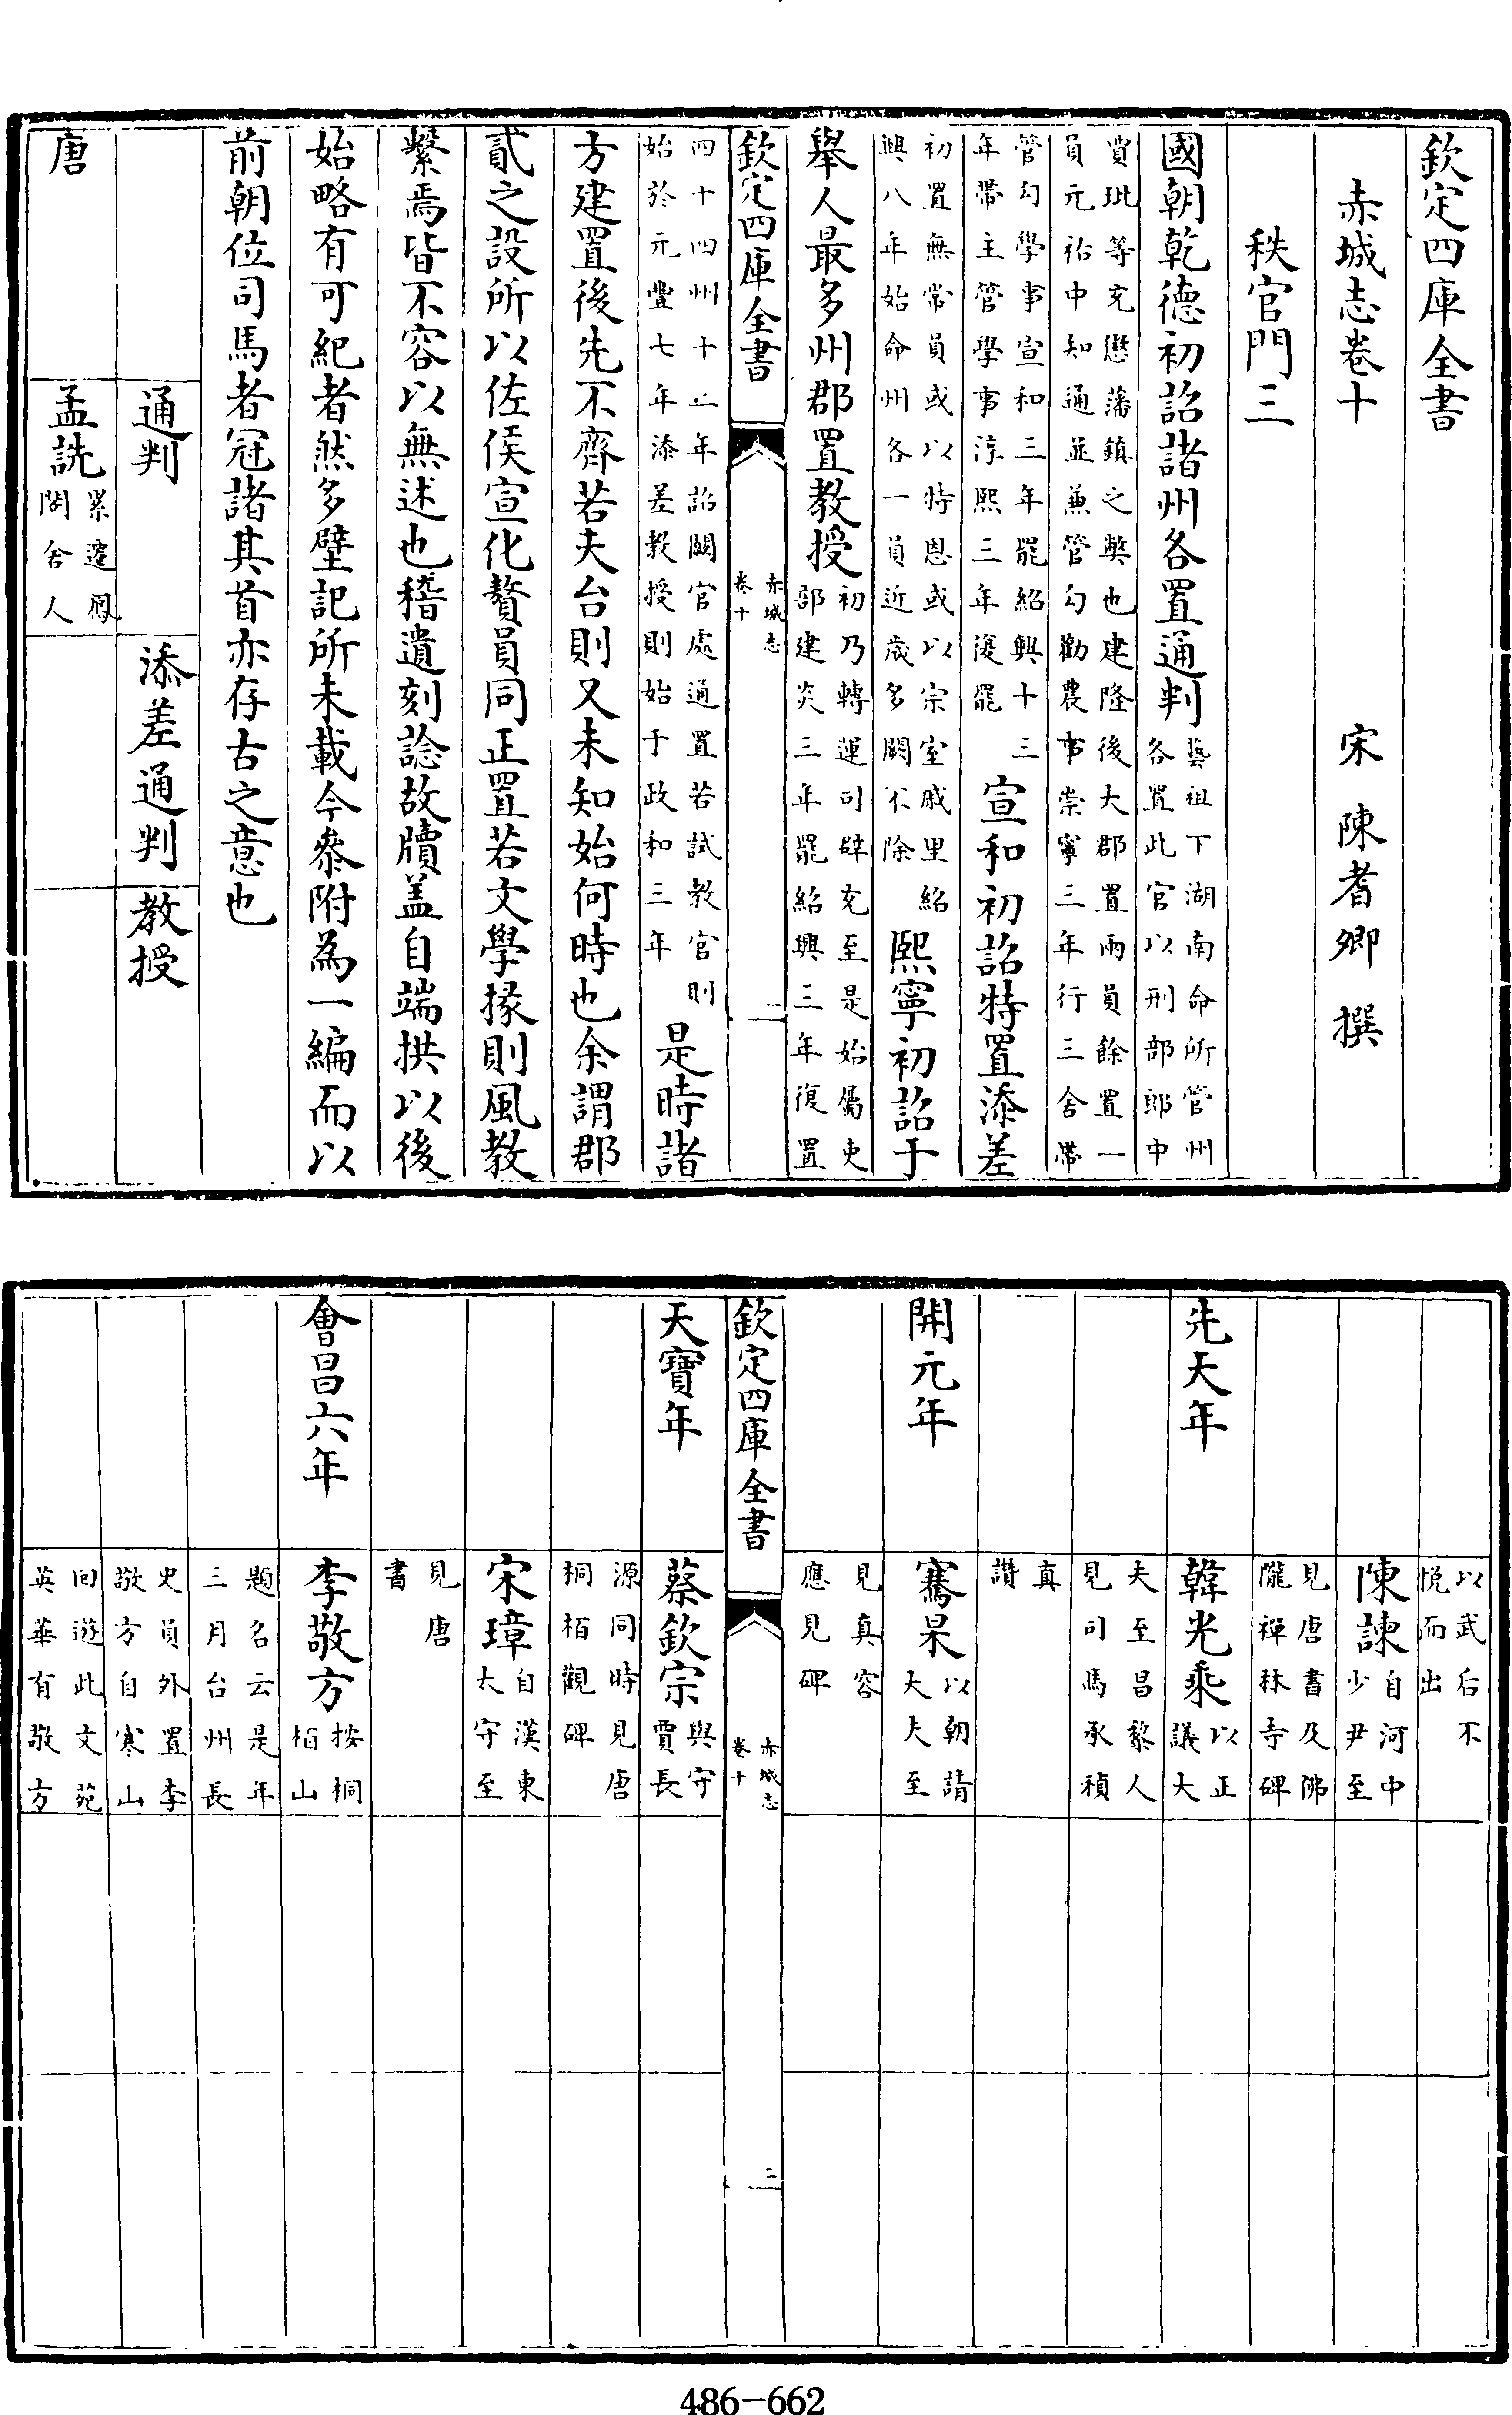 欽定四庫全書
赤城志卷十
宋 陳耆卿 撰
秩官門三
國朝乾德初詔諸州各置通判藝祖下湖南命所管州
各置此官以刑部郎中
賈玭等充懲藩鎮之弊也建隆後大郡置兩員餘置一
員元祐中知通並兼管勾勸農事崇寧三年行三舍帶
管勾學事宣和三年罷紹興十三
年帶主管學事淳熙三年復罷
宣和初詔特置添差
初置無常員或以特恩或以宗室戚里紹
興八年始命州各一員近歲多闕不除
熙寧初詔于
舉人最多州郡置教授初乃轉運司辟充至是始屬吏
部建炎三年罷紹興三年復置
欽定四庫全書
赤城志
卷十
二
四十四州十二年詔闕官處通置若試教官則
始於元豐七年添差教授則始于政和三年
是時諸
方建置後先不齊若夫台則又未知始何時也余謂郡
貳之設所以佐侯宣化贅員同正置若文學掾則風教
繫焉皆不容以無述也稽遺刻諗故牘蓋自端拱以後
始略有可紀者然多壁記所未載今叅附為一編而以
前朝位司馬者冠諸其首亦存古之意也
通判
添差通判
教授
唐
孟詵累遷鳳
閣舍人
以武后不
悅而出
陳諫自河中
少尹至
見唐書及佛
隴禪林寺碑
先天年
韓光乘以正
議大
夫至昌黎人
見司馬承禎
真
讚
開元年
騫杲以朝請
大夫至
見真容
應見碑
欽定四庫全書
赤城志
卷十
二
天寶年
蔡欽宗與守
賈長
源同時見唐
桐栢觀碑
宋璋自漢東
太守至
見唐
書
會昌六年
李敬方按桐
栢山
題名云是年
三月台州長
史員外置李
敬方自寒山
回遊此文苑
英華有敬方
486-662